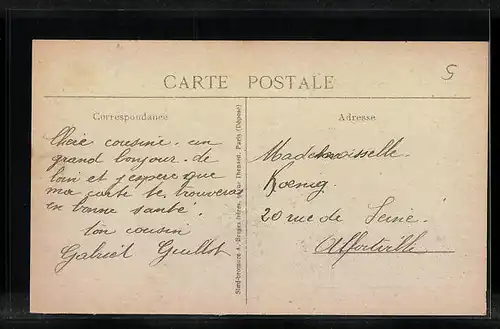 5
CARTE POSTALE
Correspondance
Chère cousine. un
grand bonjour. de
loin et j'espère que
ma carte te trouveras
en bonne santé.
ton cousin
Gabriel Guillot
Adresse
Mademoisselle.
Koenig.
20 rue de Seine.
Alfortville
Paris (Déposé)